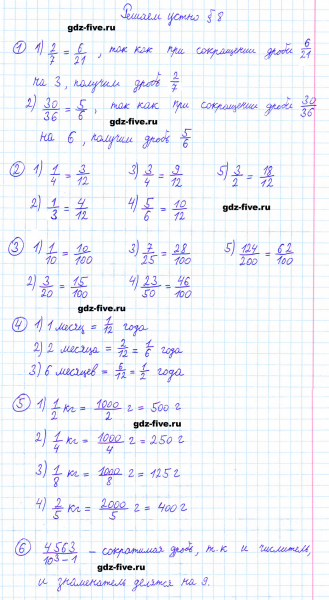 Решаем устно § 8
gdz-five.ru
① 1) 2/7 = 6/21 , так как при сокращении дроби 6/21
на 3, получим дробь 2/7
gdz-five.ru
2) 30/36 = 5/6 , так как при сокращении дроби 30/36
gdz-five.ru
на 6 , получим дробь 5/6
② 1) 1/4 = 3/12 3) 3/4 = 9/12 5) 3/2 = 18/12
2) 1/3 = 4/12 4) 5/6 = 10/12
gdz-five.ru
③ 1) 1/10 = 10/100 3) 7/25 = 28/100 5) 124/200 = 62/100
2) 3/20 = 15/100 4) 23/50 = 46/100
gdz-five.ru
④ 1) 1 месяц = 1/12 года
2) 2 месяца = 2/12 = 1/6 года
3) 6 месяцев = 6/12 = 1/2 года
⑤ 1) 1/2 кг = 1000/2 г = 500 г
gdz-five.ru
2) 1/4 кг = 1000/4 г = 250 г
3) 1/8 кг = 1000/8 г = 125 г
4) 2/5 кг = 2000/5 г = 400 г
gdz-five.ru
⑥ 4563/10³-1 – сократимая дробь, т.к и числитель,
и знаменатель делятся на 9.
gdz-five.ru